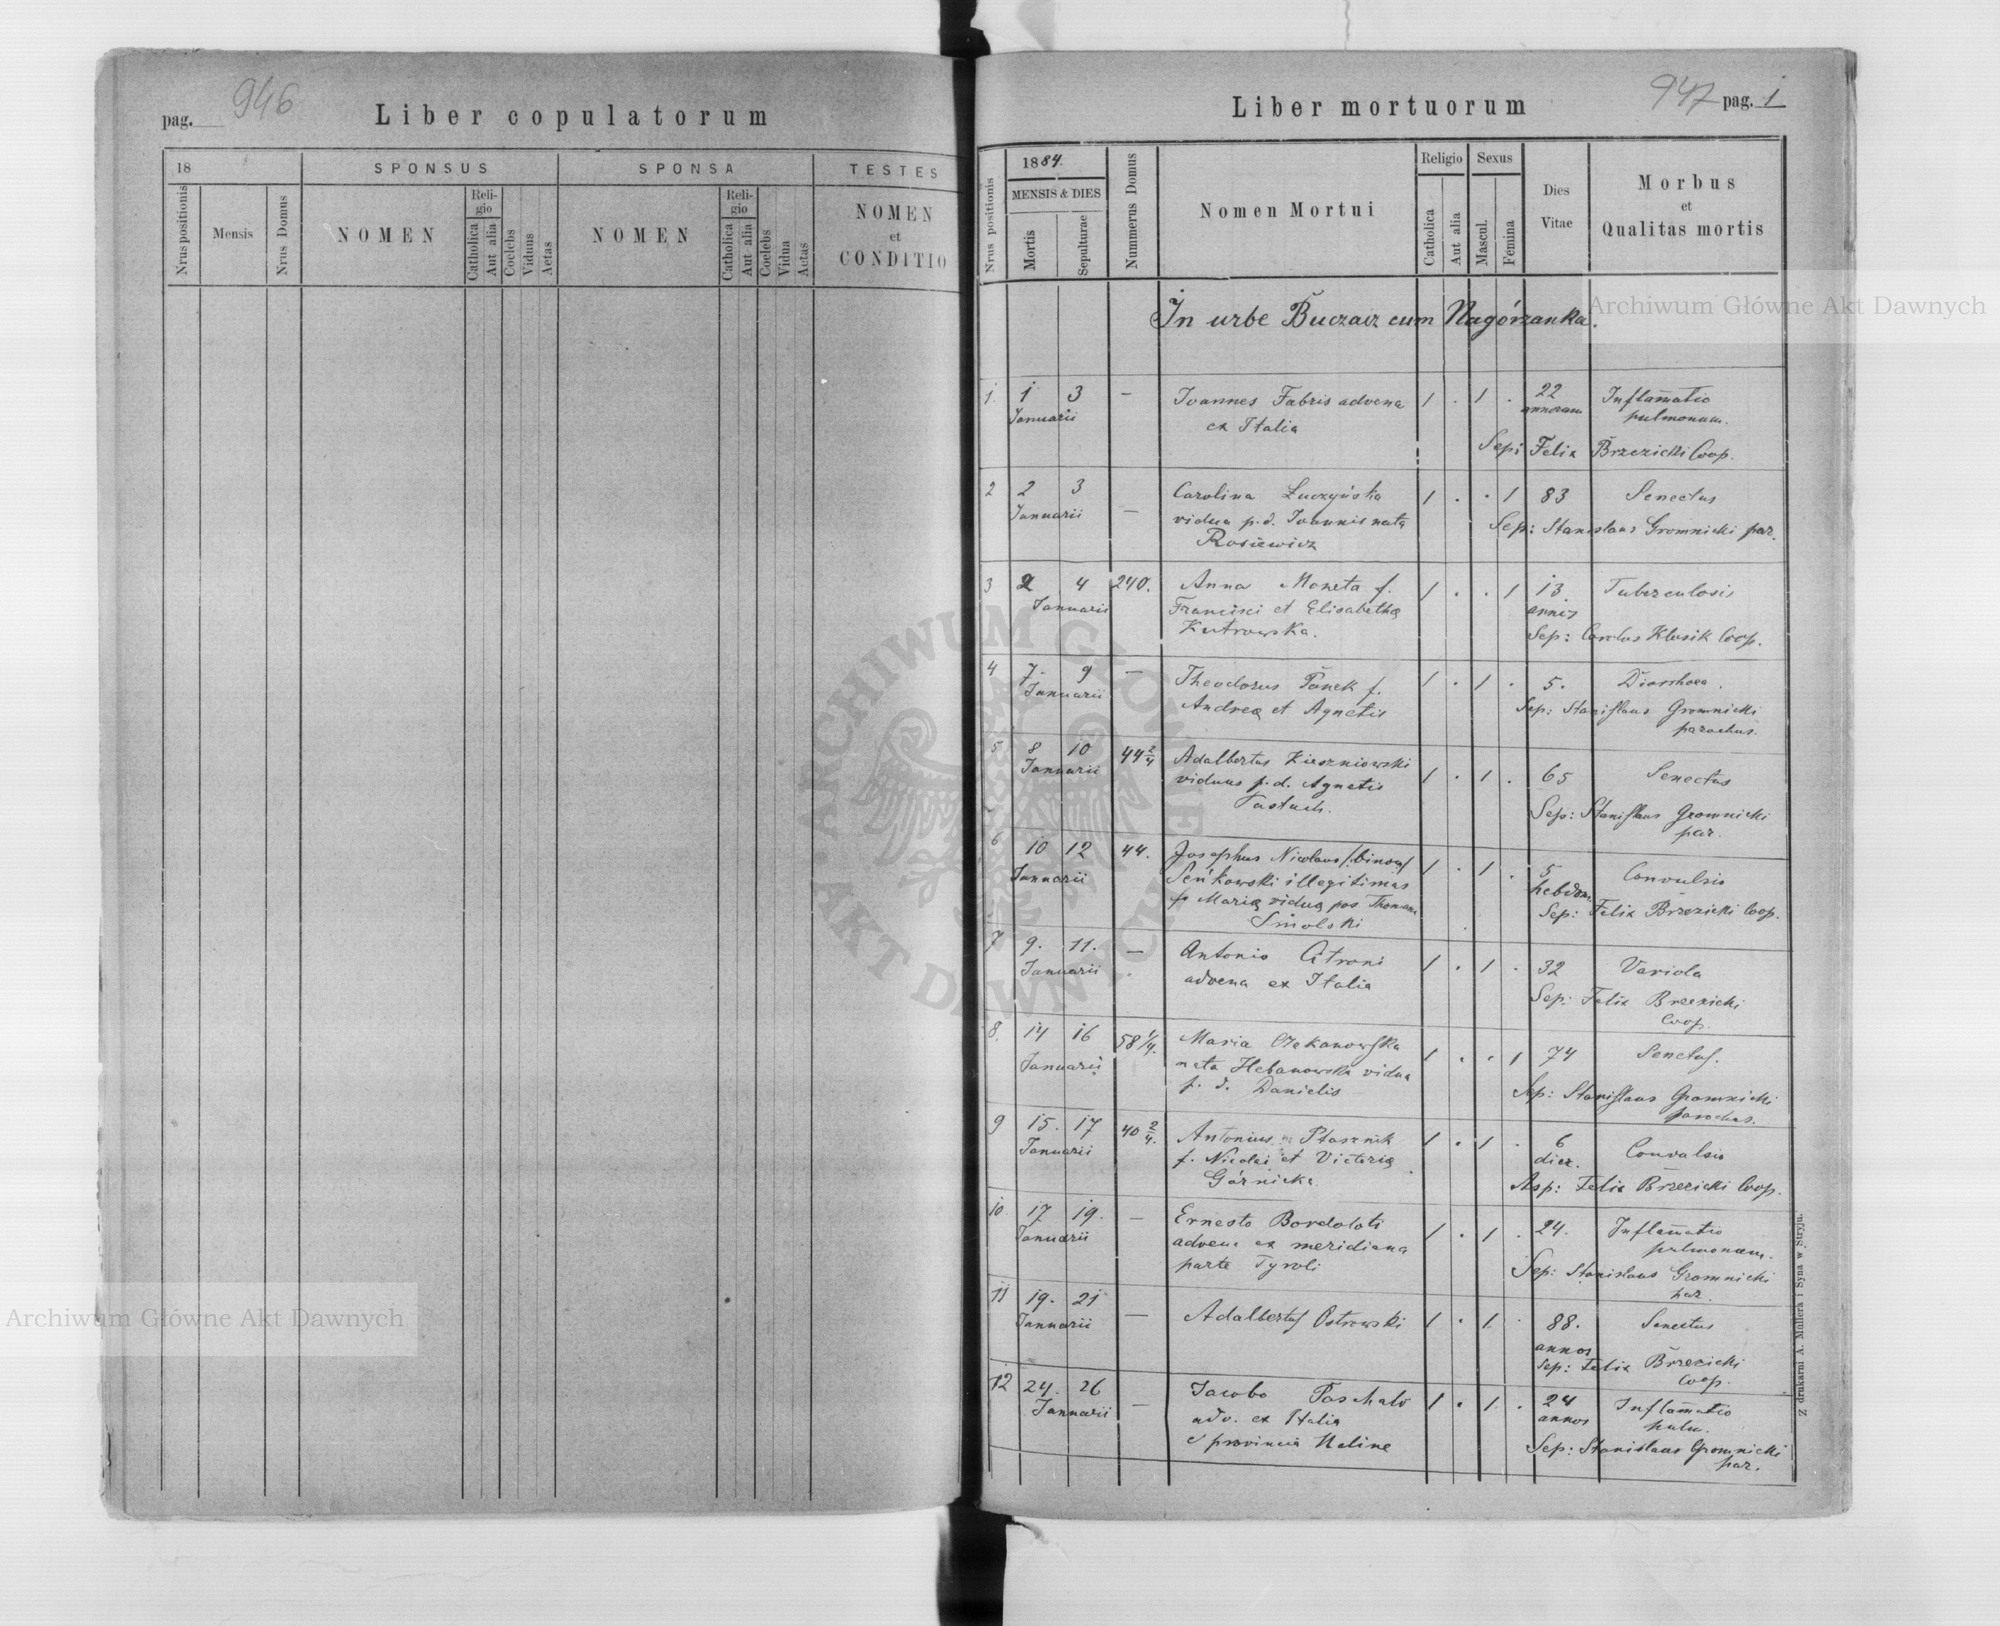 946
pag.
Liber copulatorum
18
SPONSUS
SPONSA
TESTES
Nrus positionis
Mensis
Nrus Domus
NOMEN
Religio
Catholica
Aut alia
Coelebs
Viduus
Aetas
NOMEN
Religio
Catholica
Aut alia
Coelebs
Vidua
Aetas
NOMEN
et
CONDITIO
Liber mortuorum
947 pag. 1
Nrus positionis
1884.
MENSIS & DIES
Mortis
Sepulturae
Nummerus Domus
Nomen Mortui
Religio
Catholica
Aut alia
Sexus
Mascul.
Femina
Dies
Vitae
Morbus
et
Qualitas mortis
In urbe Buczacz cum Nagórzanka.
1. 1 3 — Joannes Fabris advena 1 . 1 . 22 Inflam̄atio
Januarii ex Italia annorum pulmonum.
Sep: Felix Brzezicki Coop.
2 2 3 Carolina Łuczyńska 1 . . 1 83 Senectus
Januarii — vidua p. d. Joannis nata Sep: Stanislaus Gromnicki par.
Rosiewicz
3 2 4 240. Anna Moneta f. 1 . . 1 13 Tuberculosis
Januarii Francisci et Elisabethę annis
Kutrowska. Sep: Carolus Klusik Coop.
4 7. 9 — Theodorus Panek f. 1 . 1 . 5. Diarrhoea.
Januarii Andreę et Agnetis Sep: Stanislaus Gromnicki
parochus.
5 8 10 44 2/4 Adalbertus Kieszniowski 1 . 1 . 65 Senectus
Januarii viduus p. d. Agnetis Sep: Stanislaus Gromnicki
Pastuch. par.
6 10 12 44. Josephus Nicolaus /: binom/ 1 . 1 . 5 Convulsio
Januarii Seńkowski illegitimus hebdom.
f. Marię viduę pos Thomam Sep: Felix Brzezicki Coop.
Smolski
7 9. 11. — Antonio Citroni 1 . 1 . 32 Variola
Januarii advena ex Italia Sep: Felix Brzezicki
Coop.
8. 14 16 58 1/4. Maria Czekanowska 1 . . 1 74 Senectus.
Januarii nata Hebanowska vidua Sep: Stanislaus Gromnicki
p. d. Danielis parochus.
9 15. 17 40 2/4. Antonius Ptasznik 1 . 1 . 6 Convulsio
Januarii f. Nicolai et Victorię dier.
Górnicka. Sep: Felix Brzezicki Coop.
10. 17 19. — Ernesto Bordoloti 1 . 1 . 24. Inflam̄atio
Januarii advena ex meridiana pulmonum.
parte Tyroli Sep: Stanislaus Gromnicki
par.
11 19. 21 — Adalbertus Ostrowski 1 . 1 . 88. Senectus
Januarii annos
Sep: Felix Brzezicki
Coop.
12 24. 26 — Jacobo Paschalo 1 . 1 . 24 Inflam̄atio
Januarii adv. ex Italia annos pulm.
e provincia Sep: Stanislaus Gromnicki
par.
Z drukarni A. Mullera i Syna w Stryju.
Archiwum Główne Akt Dawnych
Archiwum Główne Akt Dawnych
ARCHIWUM GŁÓWNE AKT DAWNYCH